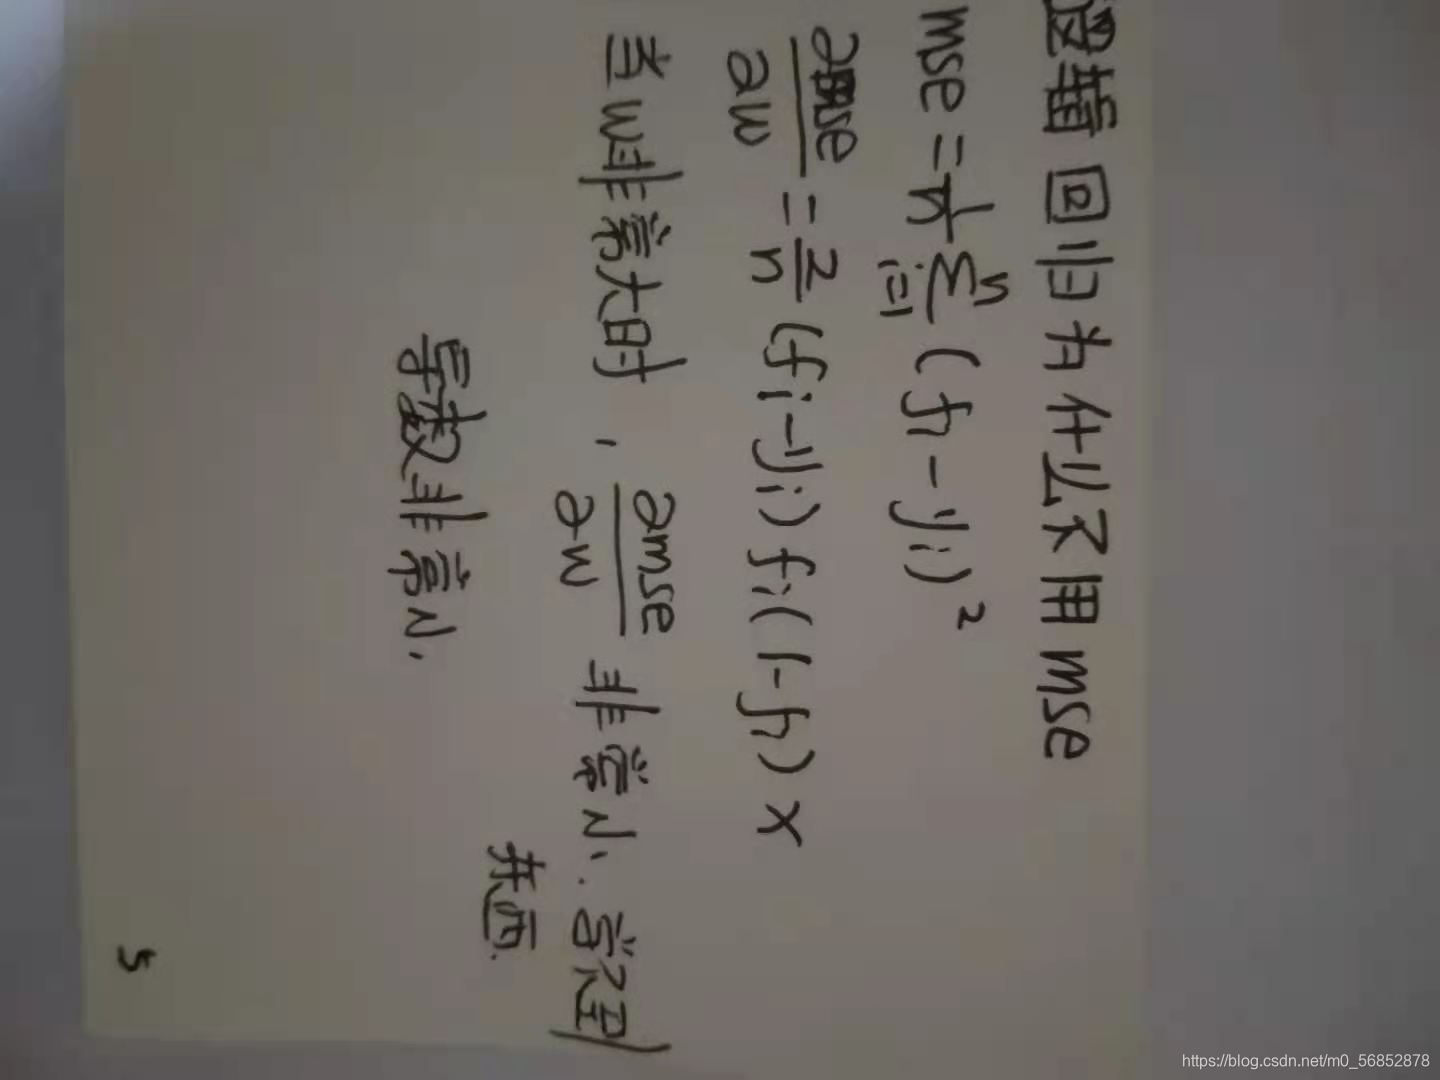 逻辑回归为什么不用mse
mse = 1/n ∑ⁿᵢ₌₁ (fi - yi)²
∂mse/∂w = 2/n (fi - yi) fi (1 - fi) x
当w非常大时, ∂mse/∂w 非常小. 学习到
导数非常小.
5
https://blog.csdn.net/m0_56852878